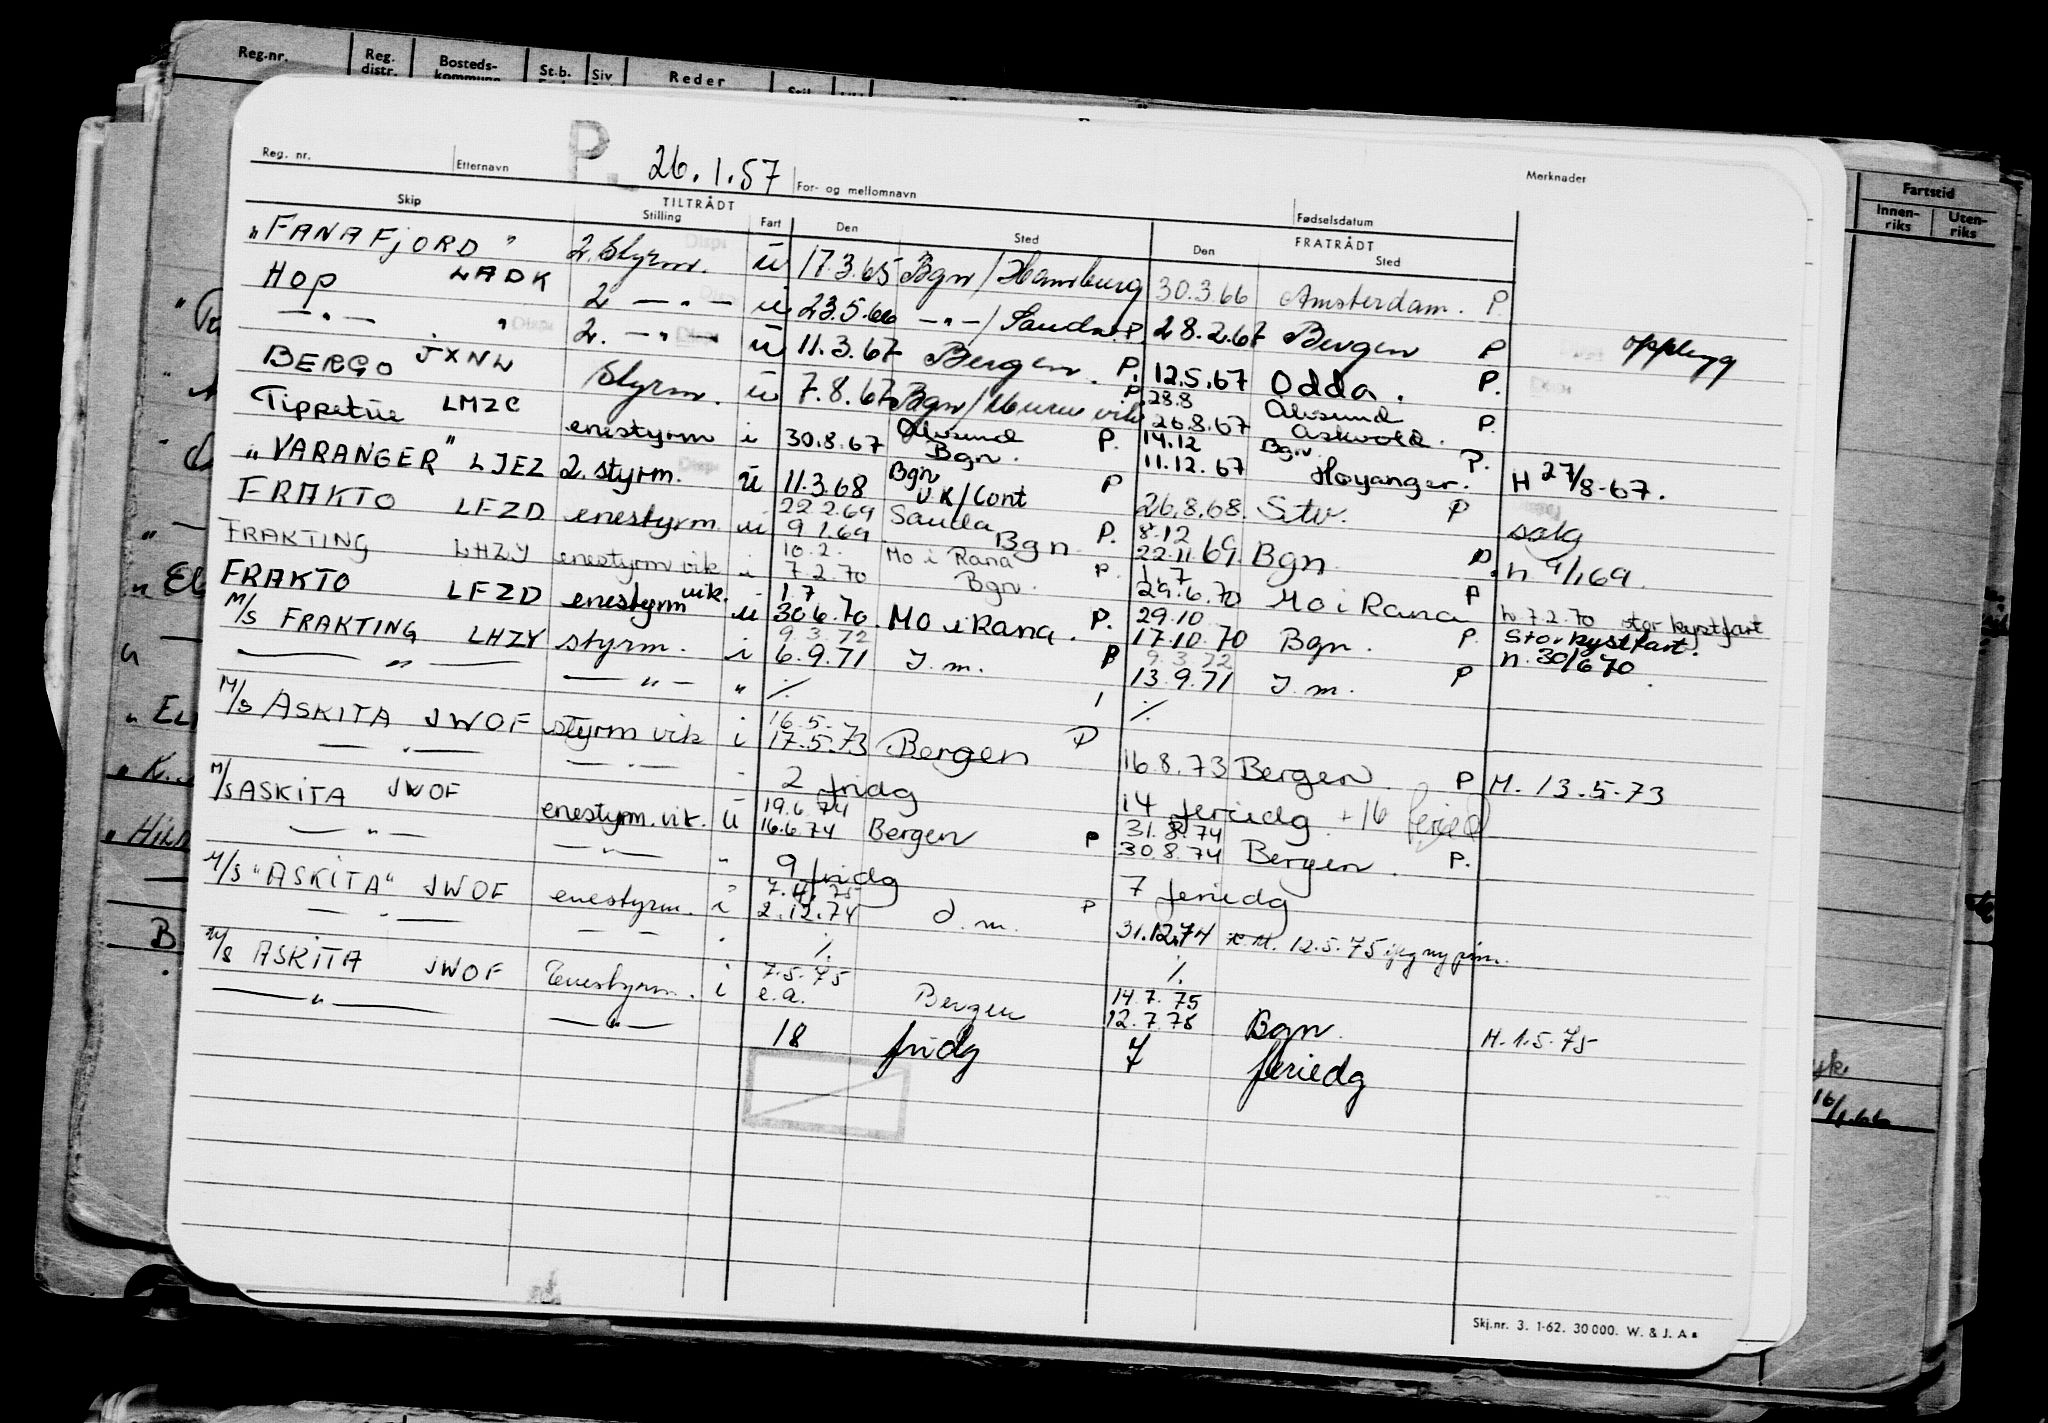 Reg.nr. Reg. distr. Bosteds- kommune St.b. Siv Reder
P. 26.1.57
Reg. nr. Etternavn For- og mellomnavn Fødselsdatum Merknader
TILTRÅDT FRATRÅDT
Skip Stilling Fart Den Sted Den Sted
"FANAFJORD" 2. Styrm. u 17.3.65 Bgn/Hamburg 30.3.66 Amsterdam. P.
HOP LADK 2 —"— u 23.5.66 —"—/Sauda. P. 28.2.67 Bergen P opplegg
—"— " 2. —"— u 11.3.67 Bergen. P. 12.5.67 Odda. P.
BERGO JXNL Styrm. u 7.8.67 Bgn/ P 28.8 26.8.67 Ålesund Askvoll. P.
Tippetue LMZC enestyrm i 30.8.67 Ålesund Bgn. P. 14.12 11.12.67 Bgn. Høyanger. P. H 27/8-67.
"VARANGER" LJEZ 2. styrm. u 11.3.68 Bgn UK/Cont P 26.8.68. Stv. P salg
FRAKTO LFZD enestyrm. u 22.2.69 9.1.69 Sauda Bgn P. 8.12 22.11.69 Bgn P. n 9/1 69.
FRAKTING LHZY enestyrm vik i 10.2. 7.2.70 Mo i Rana Bgn. P. 1.7 29.6.70 Mo i Rana P h 7.2.70 stor kystfart
FRAKTO LFZD enestyrm vik. u 1.7 30.6.70 Mo i Rana. P. 29.10 17.10.70 Bgn. P. Stor kystfart. n. 30/6 70.
M/S FRAKTING LHZY styrm. i 9.3.72 6.9.71 I.m. P 9.3.72 13.9.71 I.m. P
—"— —"— " ⁒ ⁒
M/S ASKITA JWOF styrm vik i 16.5. 17.5.73 Bergen P 16.8.73 Bergen. P M. 13.5.73
—"— —"— - 2 fridg 14 feriedg +16 feried
M/S ASKITA JWOF enestyrm.vik. U 19.6.74 16.6.74 Bergen P 31.8.74 30.8.74 Bergen. P.
—"— —"— " 9 fridg 7 feriedg
M/S "ASKITA" JWOF enestyrm. i 7.4.75 2.12.74 d.m. P 31.12.74 M. 12.5.75
—"— — — . ⁒ ⁒
M/S ASKITA JWOF Enestyrm. i 7.5.75 e.a. Bergen 14.7.75 12.7.75 Bgn. M. 1.5.75
—"— —"— 18 fridg 7 feriedg
Skj.nr. 3. 1-62. 30 000. W. & J. A s
Fartstid
Innen- riks Uten- riks
16/1.66